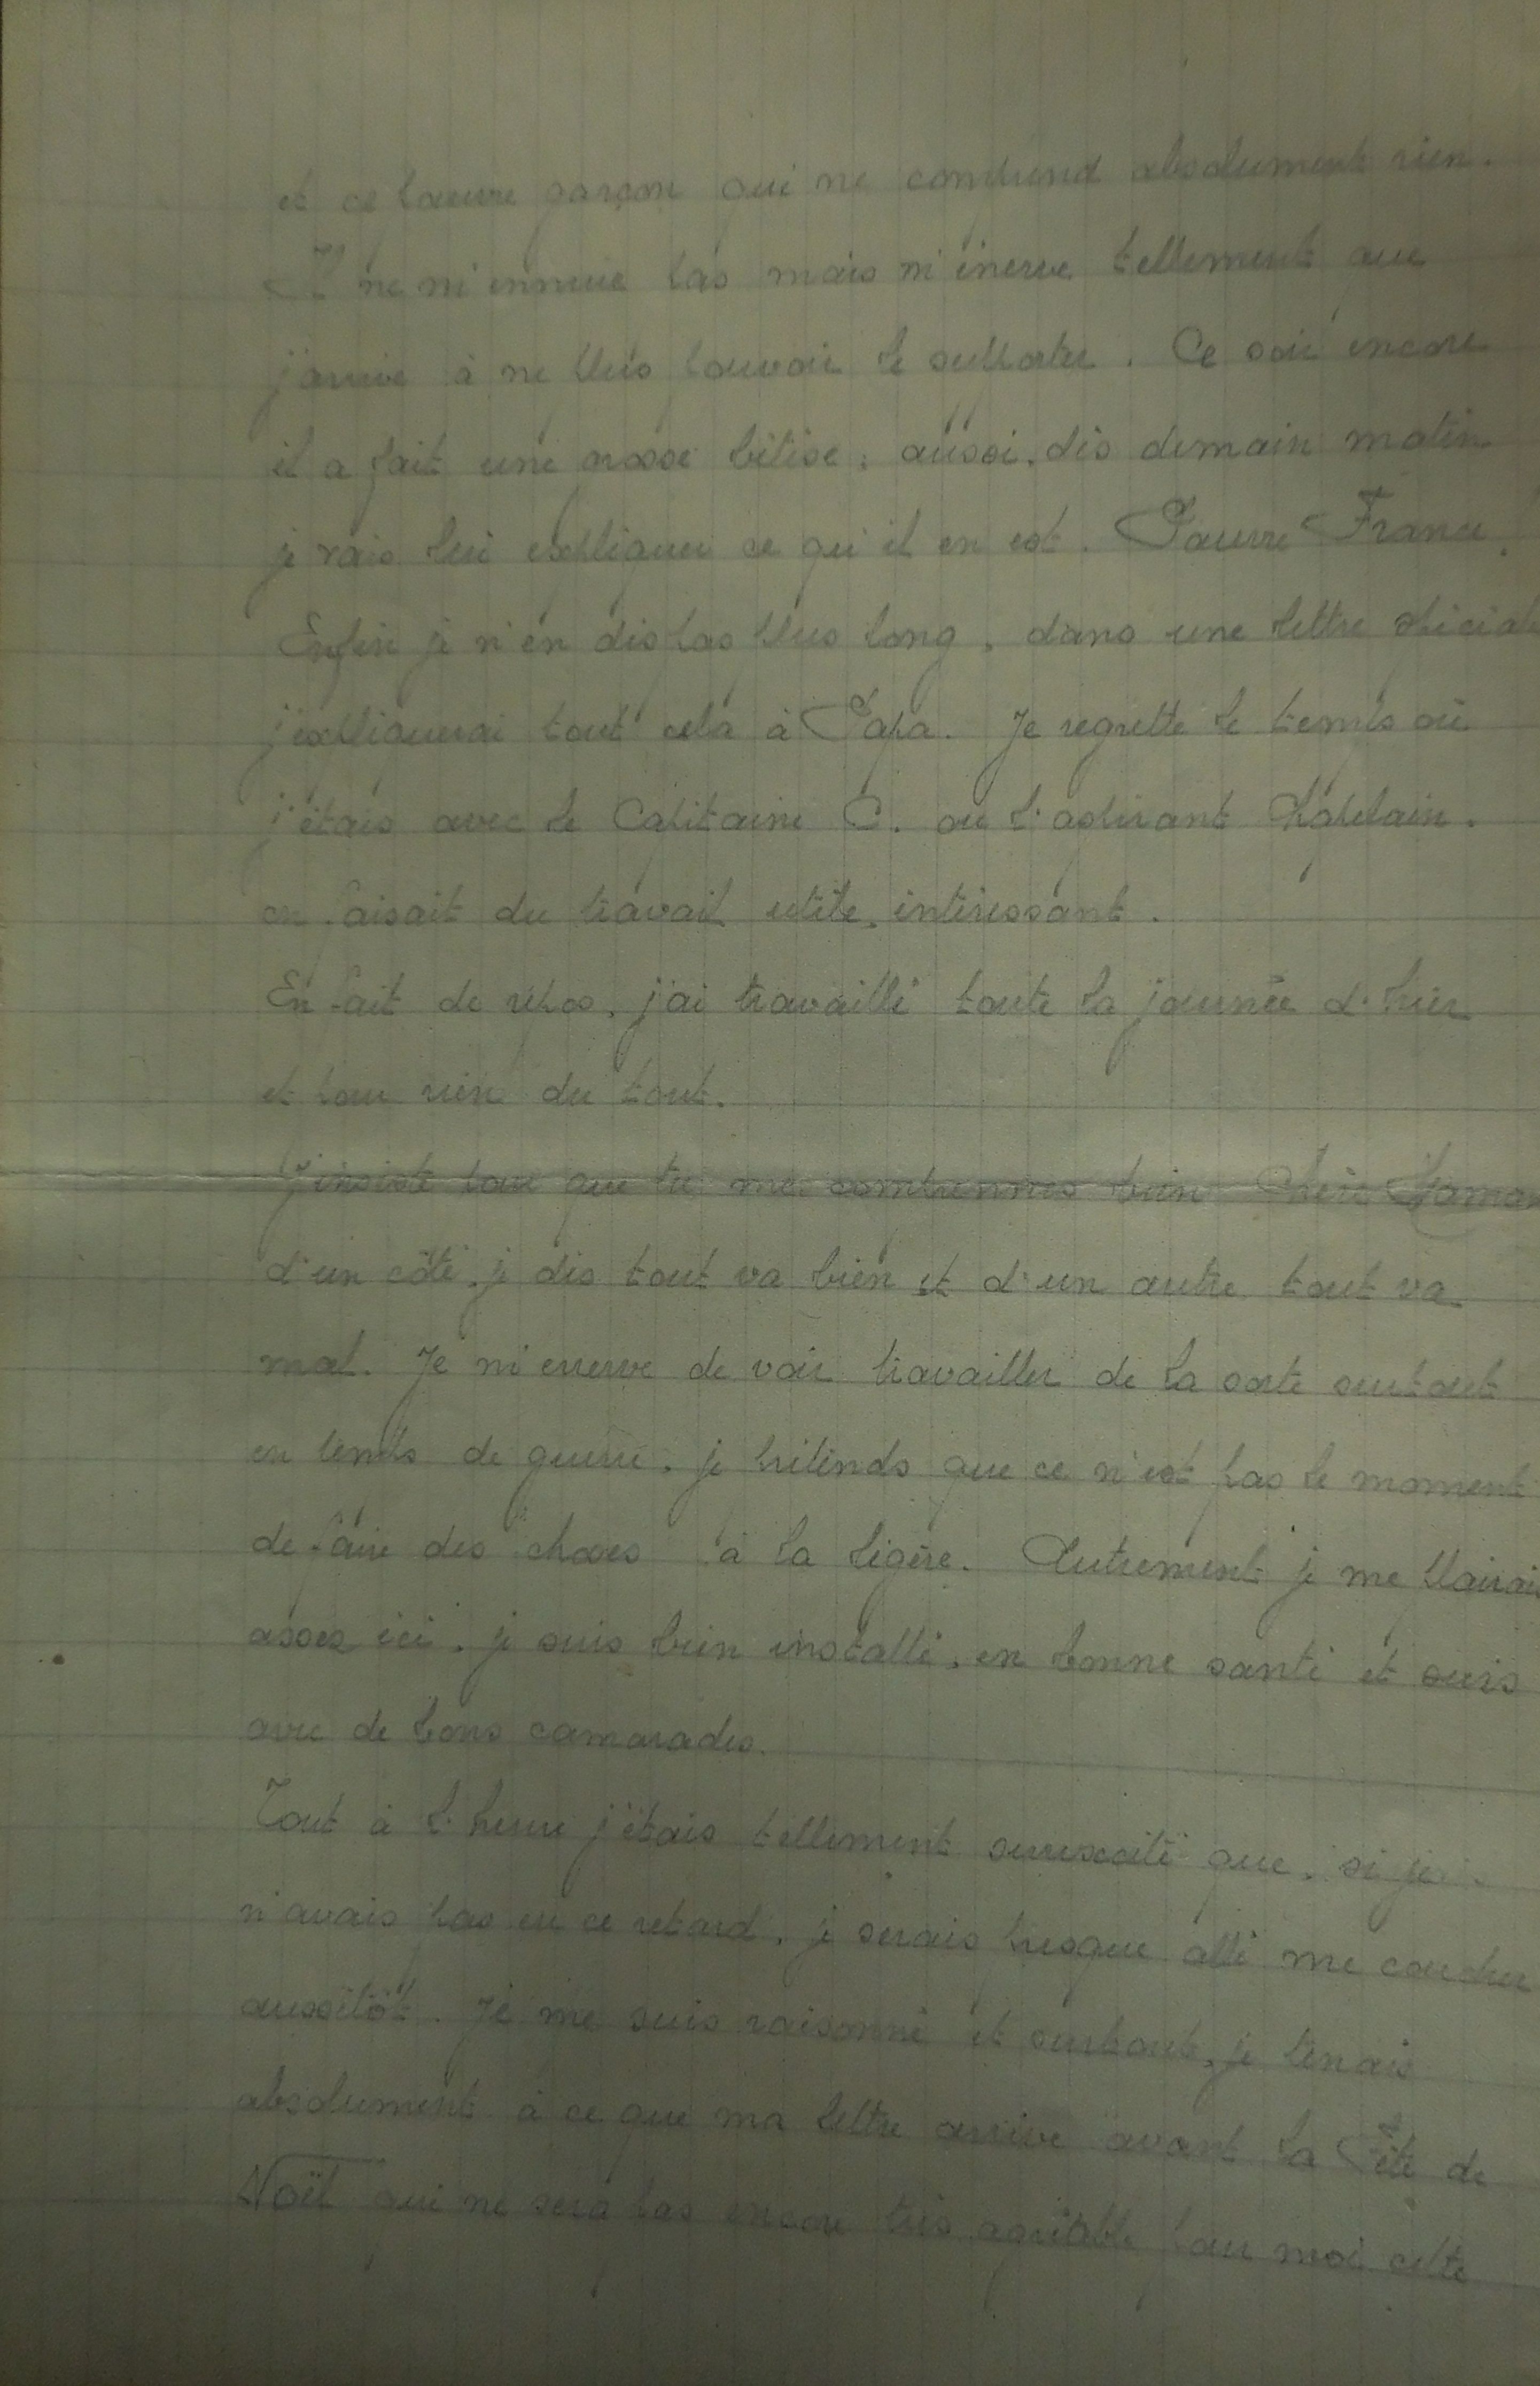 et ce pauvre garçon qui ne comprend absolument rien.
Il ne m'ennuie pas mais m'énerve tellement que
j'arrive à ne plus pouvoir le supporter. Ce soir encore
il a fait une grosse bêtise, aussi, dès demain matin
je vais lui expliquer ce qu'il en est. Pauvre France.
Enfin je n'en dis pas plus long, dans une lettre spéciale
j'expliquerai tout cela à Papa. Je regrette le temps où
j'étais avec le Capitaine C. ou l'aspirant Chapelain.
on faisait du travail utile, intéressant.
En fait de repos, j'ai travaillé toute la journée d'hier
et pour rien du tout.
J'insiste pour que tu me comprennes bien Chère Maman
d'un côté, je dis tout va bien et d'un autre tout va
mal. Je m'énerve de voir travailler de la sorte surtout
en temps de guerre, je prétends que ce n'est pas le moment
de faire des choses à la légère. Autrement je me plairais
assez ici, je suis bien installé, en bonne santé et suis
avec de bons camarades.
Tout à l'heure j'étais tellement surexcité que, si je
n'avais pas eu ce retard, je serais presque allé me coucher
aussitôt. Je me suis raisonné et surtout, je tenais
absolument à ce que ma lettre arrive avant la Fête de
Noël qui ne sera pas encore très agréable pour moi cette